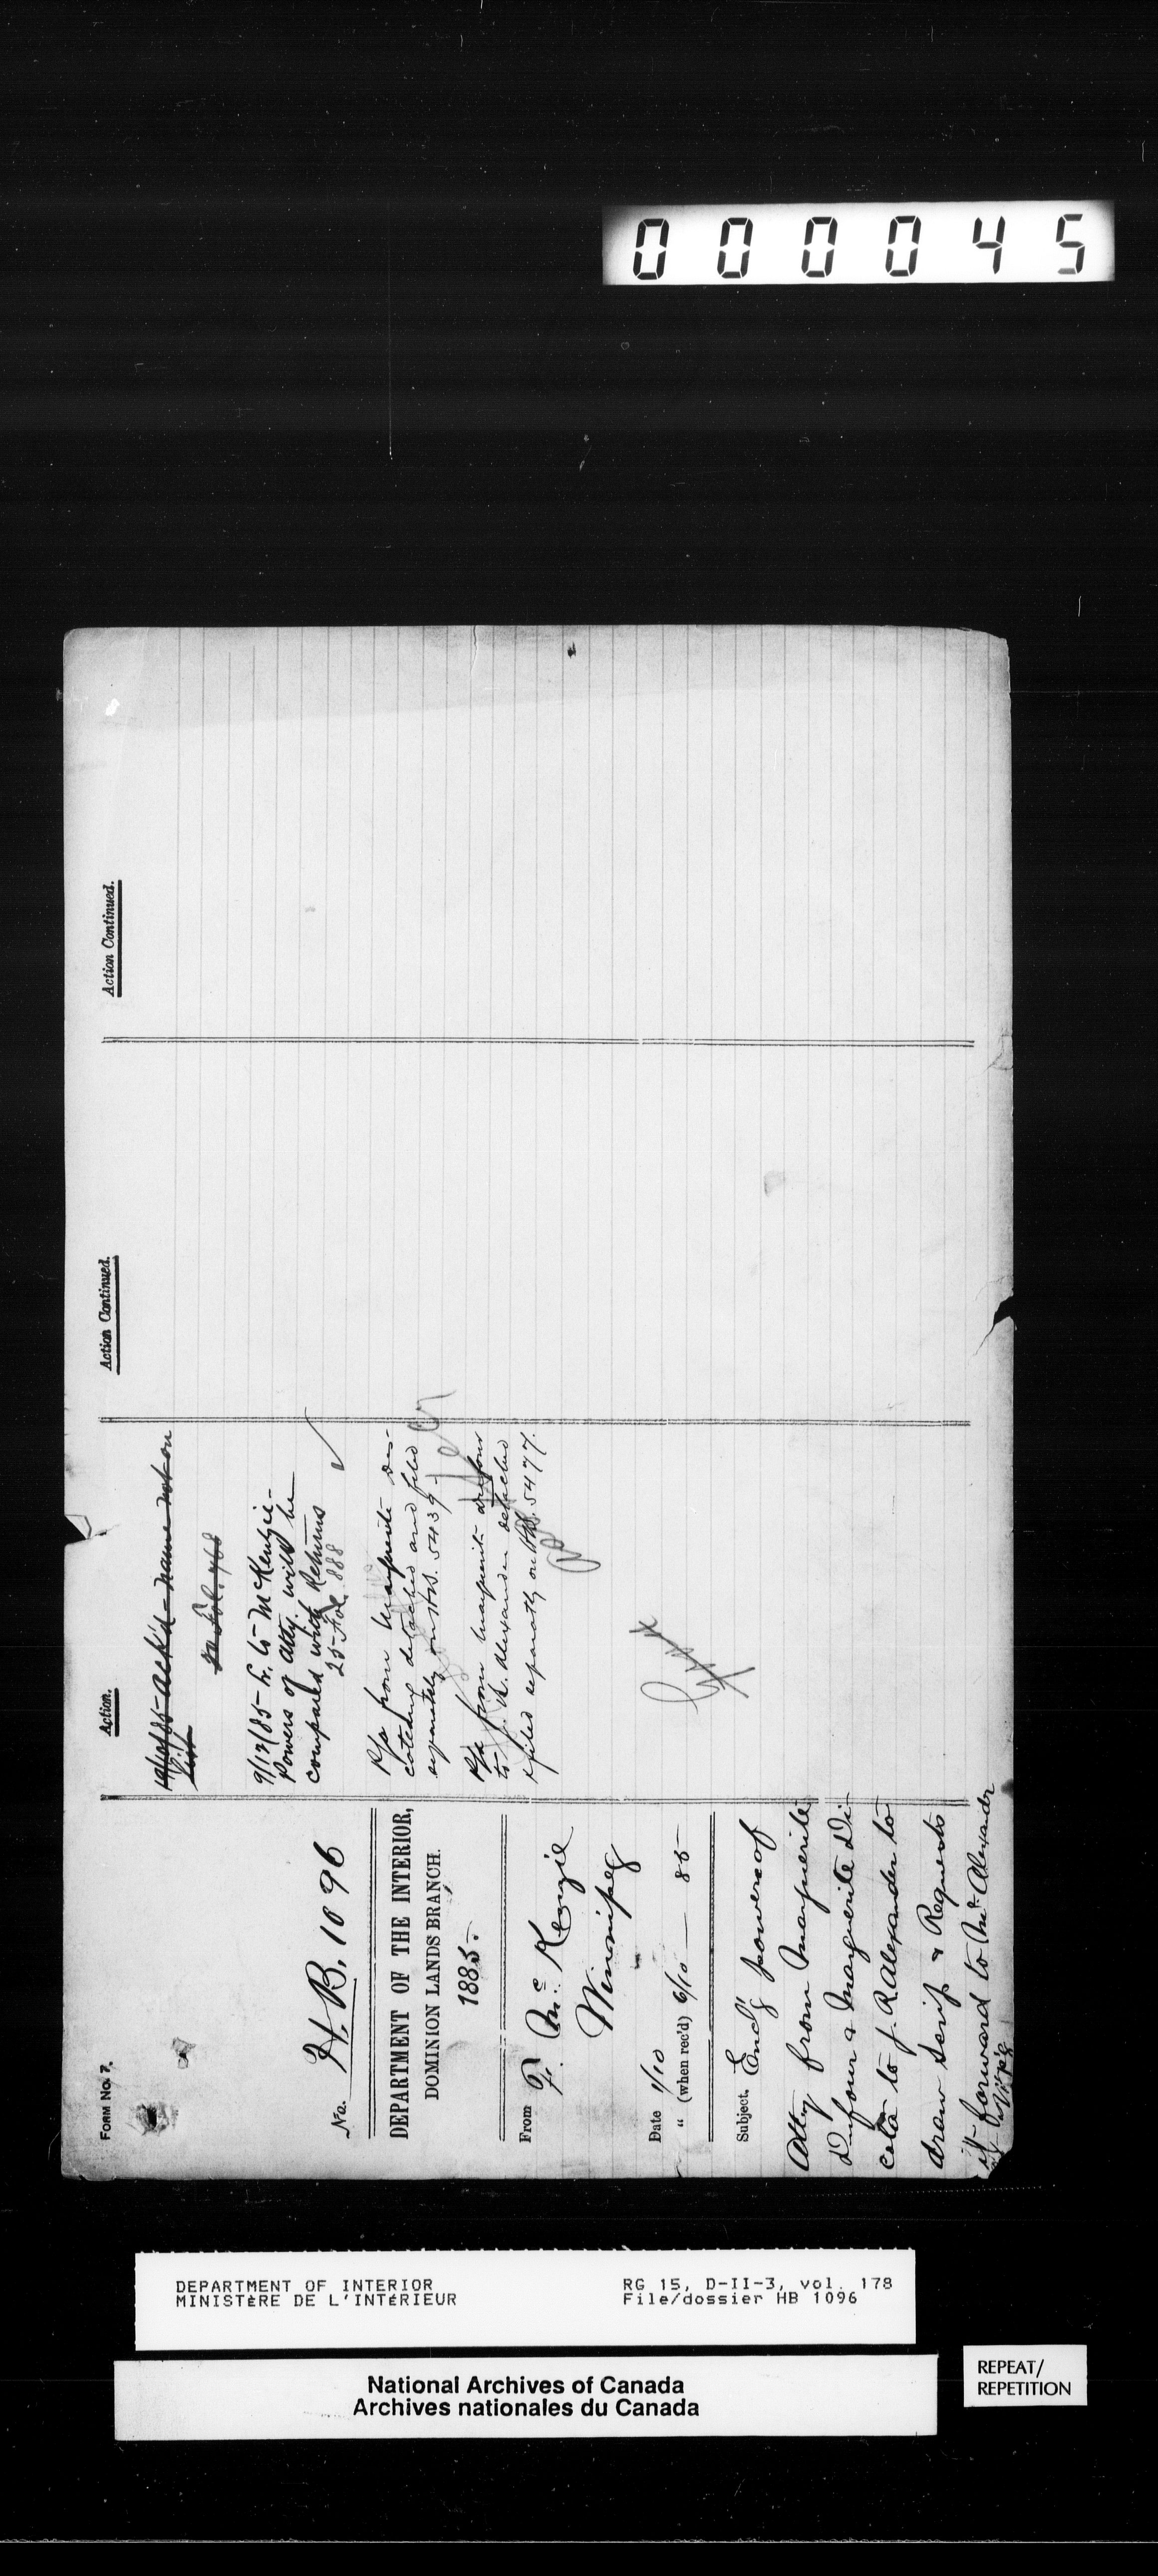 000045
FORM No. 7.
No. H.B. 1096
DEPARTMENT OF THE INTERIOR,
DOMINION LANDS BRANCH.
1885.
From F. McKenzie
Winnipeg
Date 1/10
" (when rec'd) 6/10 — 85
Subject. Encl'g powers of
Atty from Marguerite
Dufour & Marguerite Di-
cota to J. R Alexander to
draw Scrip & Requests
it forward to Mr. Alexandr
Action.
ack'd - name not on
list
Fol. 468
9/12/85 - L. to McKenzie -
Powers of Atty. will be
compared with Returns
25- Fol. 888
P/a from Marguerite Des-
coteaux detached and filed
separately on H.B. 5439 -
P/a from Marguerite Dufour
to J. R. Alexander detached
& filed separately on H.B. 5477.
Action Continued.
Action Continued.
DEPARTMENT OF INTERIOR
MINISTÈRE DE L'INTÉRIEUR
RG 15, D-II-3, vol. 178
File/dossier HB 1096
National Archives of Canada
Archives nationales du Canada
REPEAT/
REPETITION